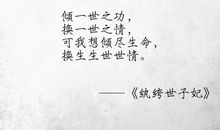 倾一世之功，
换一世之情，
可我想倾尽生命，
换生生世世情。
——《纨绔世子妃》